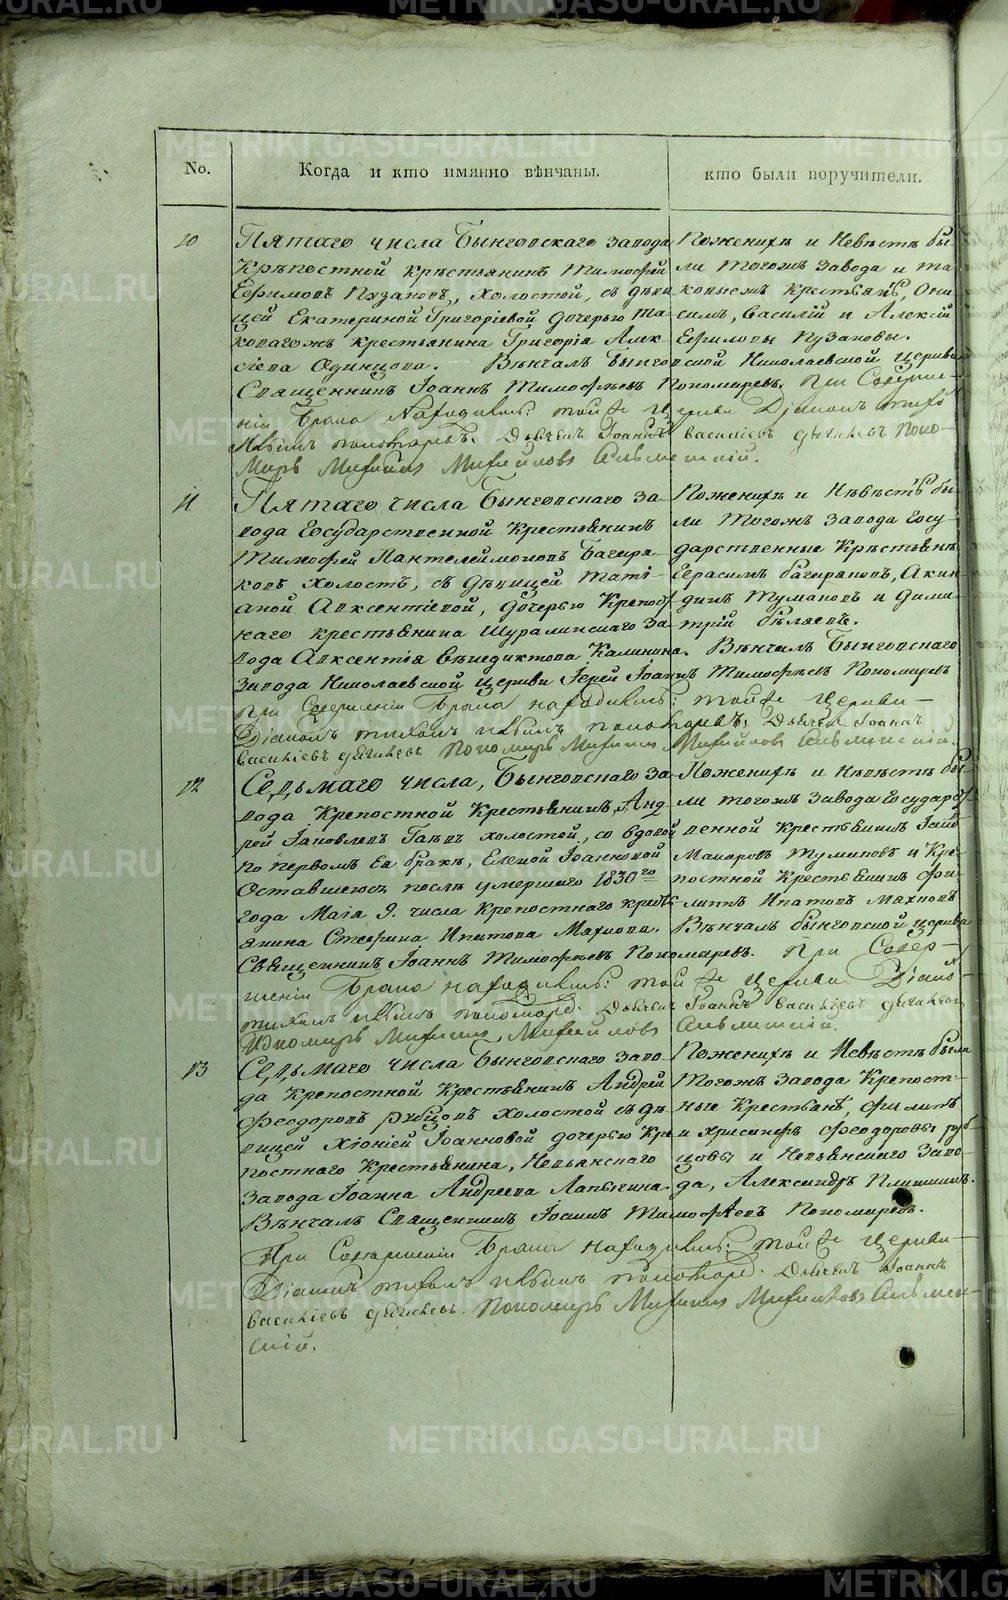 No.
Когда и кто имянно вѣнчаны.
кто были поручители.
10
Пятаго числа Бынговскаго завода
Крѣпостной крѣстьянинъ Тимофей
Ефимовъ Пузановъ, холостой, съ дѣви
цей Екатериной Григоріевой дочерью та
ковагожъ крестьянина Григорія Алек
сіева Одинцова. Вѣнчалъ Бынговской Николаевской церкви
Священникъ Іоаннъ Тимофѣевъ Пономаревъ. При Соверше-
ніи Брака находились: той же Церкви Діаконъ
Дьячекъ Іоаннъ Васильевъ Поно-
марь Михаилъ Михайловъ
Поженихѣ и Невѣстѣ бы-
ли тогожъ завода и та
ковыежъ крестьянѣ, Они
симъ, Василій и Алексѣй
Ефимовы Пузановы.
11
Пятаго числа Бынговскаго за-
вода Государственной Крестьянинъ
Тимофей Пантелеймоновъ Багиря-
ковъ холостъ, съ дѣвицей Тати-
аной Авксентіевой, дочерью Крепост
наго крестьянина Шуралинскаго за-
вода Авксентія Венедиктова Калинина. Вѣнчалъ Бынговскаго
завода Николаевской церкви Іерей Іоаннъ Тимофѣевъ Пономаревъ
При Совершеніи Брака находились: той же Церкви-
Діаконъ Дьячекъ Іоаннъ
Васильевъ Пономарь Михаилъ Михайловъ
Поженихѣ и Невѣстѣ бы-
ли тогожъ завода Госу-
дарственные Крѣстьянѣ
Герасимъ Акин-
динъ Тумановъ и Дими-
трій Бѣляевъ.
12
Седьмаго числа, Бынговскаго за-
вода Крепостной Крестьянинъ Анд-
рей Іаковлевъ холостой, со вдовой
по первомъ ея бракѣ, Еленой Іоанновой
Оставшеюся послѣ умершаго 1830го
года Маія 9. числа Крепостнаго крестъ
янина Стефана Ипатова Махнова. Вѣнчалъ Бынговской церкви
Священникъ Іоаннъ Тимофѣевъ Пономаревъ. При Совер-
шеніи Брака находились: той же Церкви Діаконъ
Дьячекъ Іоаннъ Васильевъ
Пономарь Михаилъ Михайловъ
Поженихѣ и Невѣстѣ бы-
ли тогожъ завода Государст
венной Крестьянинъ
Макаровъ Тумановъ и Кре-
постной Крестьянинъ Фи-
липпъ Ипатовъ Махновъ
13
Седьмаго числа Бынговскаго заво-
да Крепостной Крестьянинъ Андрей
Феодоровъ Рубцовъ холостой съ дѣ-
вицей Хіоніей Іоанновой дочерью Кре
постнаго Крестьянина, Невьянскаго
завода Іоанна Андреева Лапыгина.
Вѣнчалъ Священникъ Іоаннъ Тимофѣевъ Пономаревъ.
При Совершеніи Брака находились: той же Церкви-
Діаконъ Дьячекъ Іоаннъ
Васильевъ Пономарь Михаилъ Михайловъ
Поженихѣ и Невѣстѣ были
Тогожъ завода Крепост-
ные Крестьянѣ, Филипъ
и Хрисанфъ Феодоровы Руб-
цовы и Невьянскаго заво-
да, Александръ
METRIKI.GASO-URAL.RU